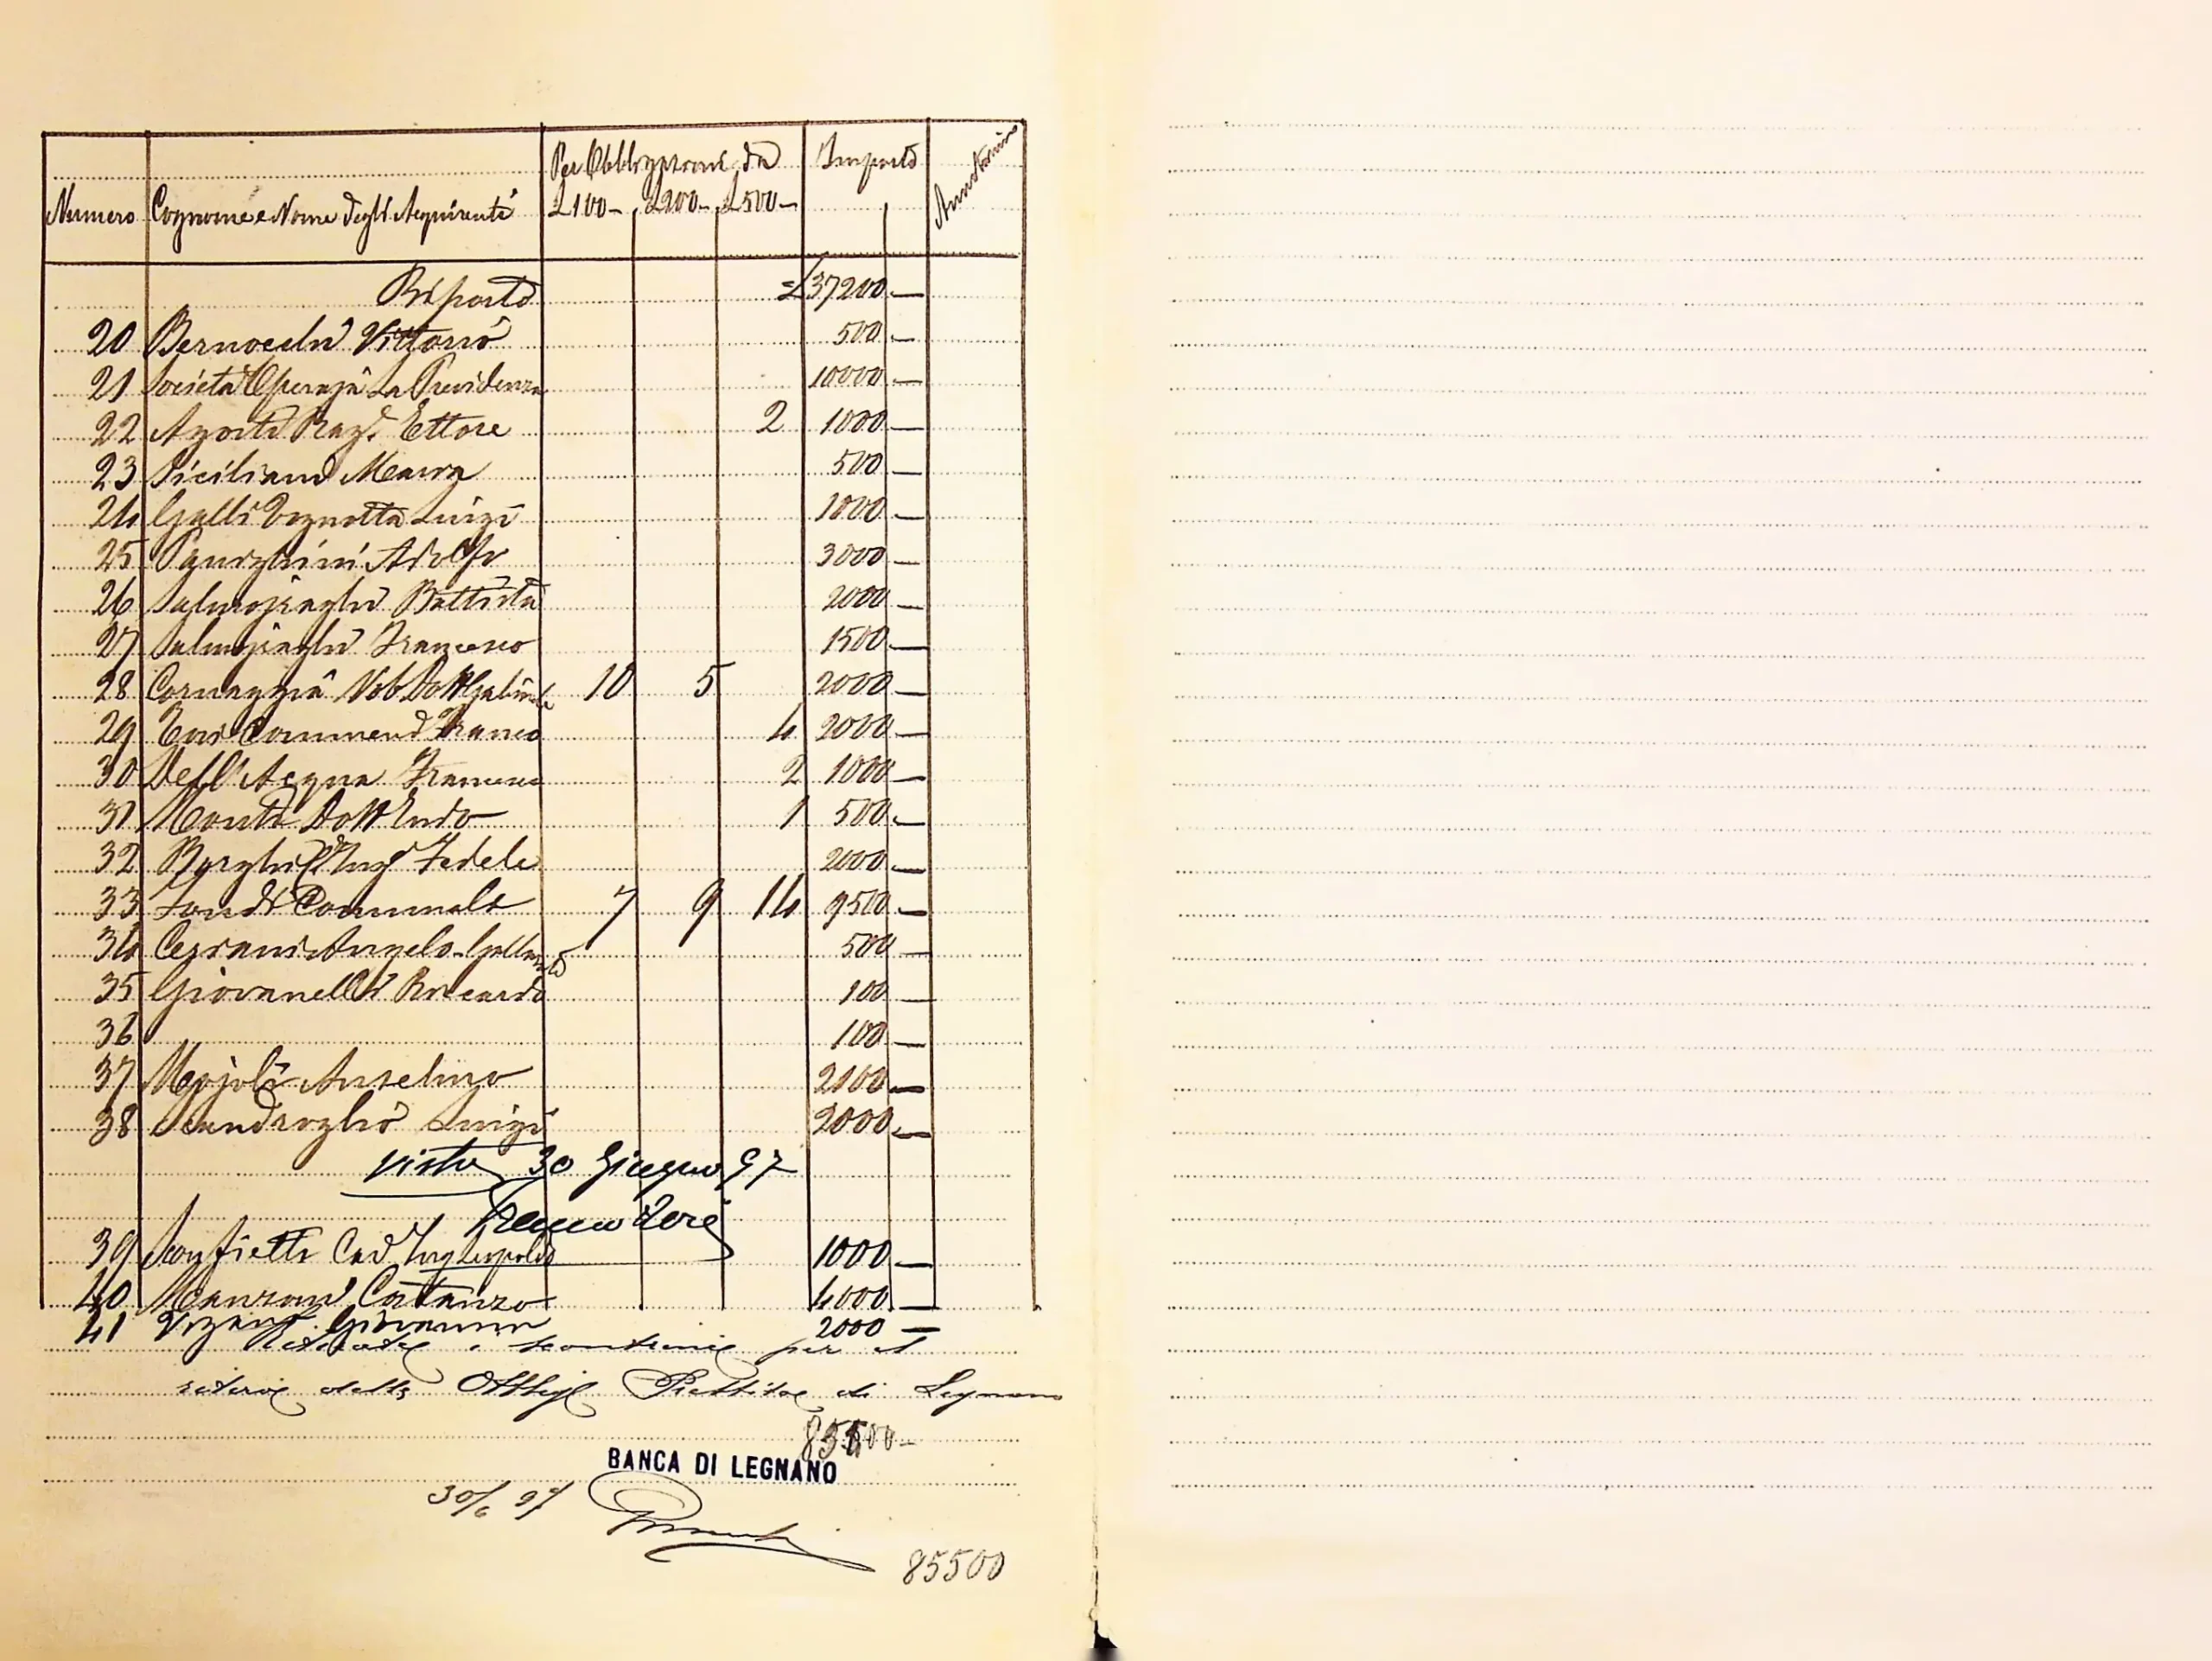 Per Obbligazioni da Importo Annotazioni
Numero Cognome e Nome degli Acquirenti £100- £200- £500-
Riporto £37200 —
20 Bernocchi Vittorio 500 —
21 Società Operaja La Previdenza 10000 —
22 Agosti Rag. Ettore 2 1000 —
23 Siciliano Maura 500 —
24 Galli Luigi 1000 —
25 Adolfo 3000 —
26 Salmojraghi Battista 2000 —
27 Salmojraghi Francesco 1500 —
28 Cornaggia Nob Dott 10 5 2000 —
29 Tosi Commend Franco 4 2000 —
30 Dell'Acqua Francesco 2 1000 —
31 Monti Dott 1 500 —
32 Borghi Ing Fedele 2000 —
33 Fondo Comunale 7 9 14 9500 —
34 Angelo 500 —
35 Giovanelli Riccardo 100 —
36 100 —
37 Majoli Anselmo 2100 —
38 Scandroglio Luigi 2000 —
Visto 30 Giugno 97
39 Sconfietti Cav Ing Leopoldo 1000 —
40 Manzoni Costanzo 4000 —
41 Giovanni 2000 —
per il
ritiro delle Obblig di Legnano
BANCA DI LEGNANO
30/6 97
85500